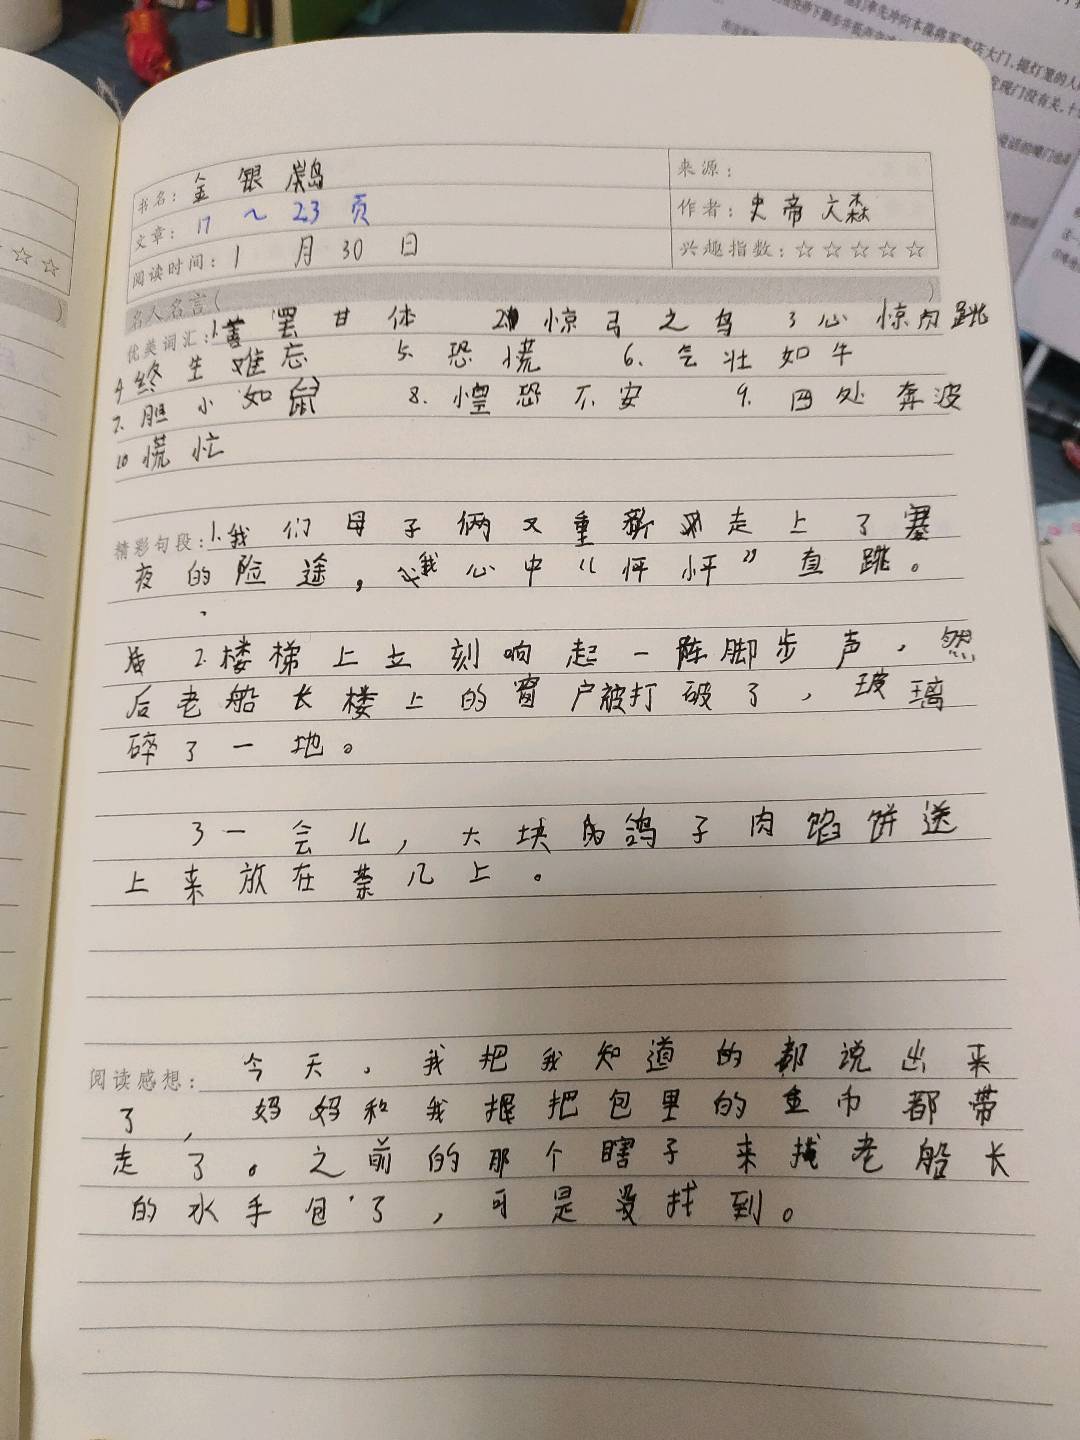 们率先冲向本葆将军客店大门,提灯笼的人
发现门没有关,十
书名: 金银岛
来源:
文章: 17～23页
作者: 史帝文森
阅读时间: 1月30日
兴趣指数: ☆☆☆☆☆
名人名言( )
优美词汇: 1.善罢甘休 2.惊弓之鸟 3心惊肉跳
4终生难忘 5.恐慌 6.气壮如牛
7.胆小如鼠 8.惶恐不安 9.四处奔波
10慌忙
精彩句段: 1.我们母子俩又重新走上了寒
夜的险途。我心中“怦怦”直跳。
2.楼梯上立刻响起一阵脚步声,然
后老船长楼上的窗户被打破了,玻璃
碎了一地。
3一会儿,大块的鸽子肉馅饼送
上来放在茶几上。
阅读感想: 今天。我把我知道的都说出来
了,妈妈和我把包里的金币都带
走了。之前的那个瞎子来找老船长
的水手包了,可是没找到。